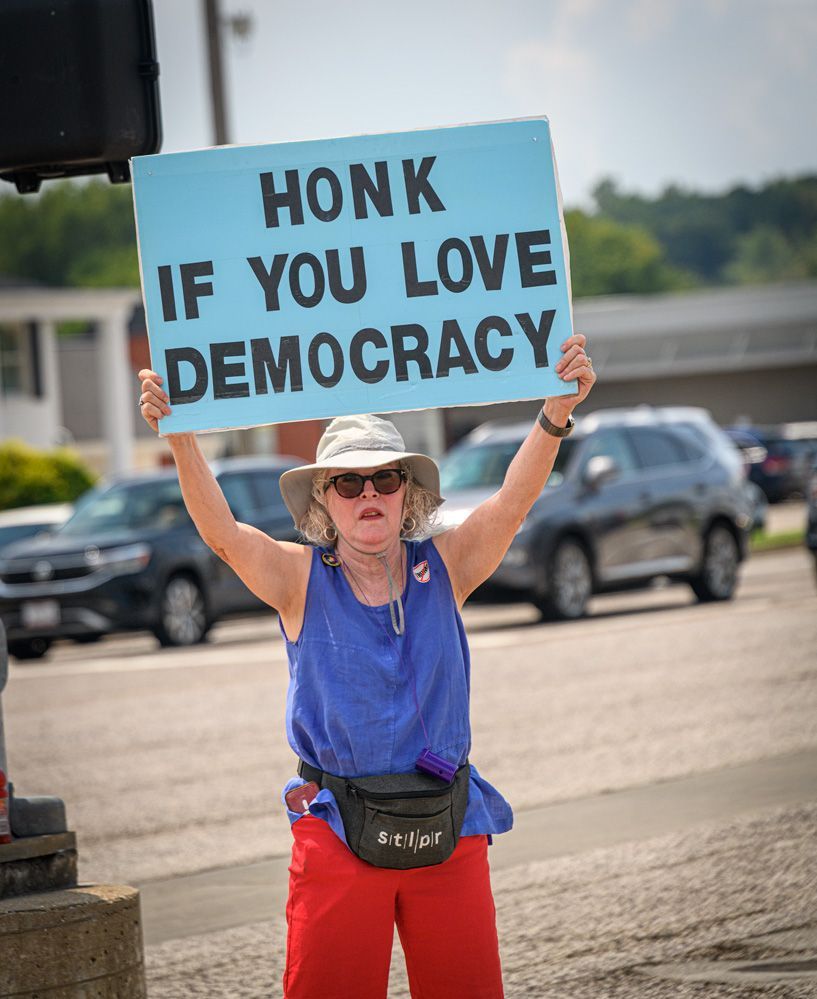 HONK
IF YOU LOVE
DEMOCRACY
s|t|l|p|r